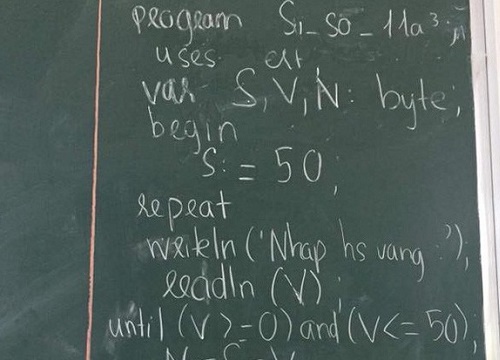 program Si_so_11a3;
uses crt;
var S,V,N: byte;
begin
S:=50;
repeat
writeln('Nhap hs vang:');
readln(V);
until (V>=0) and (V<=50);